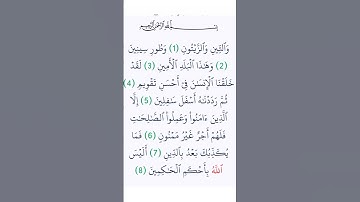 بِسْمِ ٱللَّهِ ٱلرَّحْمَٰنِ ٱلرَّحِيمِ
وَٱلتِّينِ وَٱلزَّيْتُونِ (1) وَطُورِ سِينِينَ
(2) وَهَٰذَا ٱلْبَلَدِ ٱلْأَمِينِ (3) لَقَدْ
خَلَقْنَا ٱلْإِنسَٰنَ فِىٓ أَحْسَنِ تَقْوِيمٍ (4)
ثُمَّ رَدَدْنَٰهُ أَسْفَلَ سَٰفِلِينَ (5) إِلَّا
ٱلَّذِينَ ءَامَنُوا۟ وَعَمِلُوا۟ ٱلصَّٰلِحَٰتِ
فَلَهُمْ أَجْرٌ غَيْرُ مَمْنُونٍ (6) فَمَا
يُكَذِّبُكَ بَعْدُ بِٱلدِّينِ (7) أَلَيْسَ
ٱللَّهُ بِأَحْكَمِ ٱلْحَٰكِمِينَ (8)